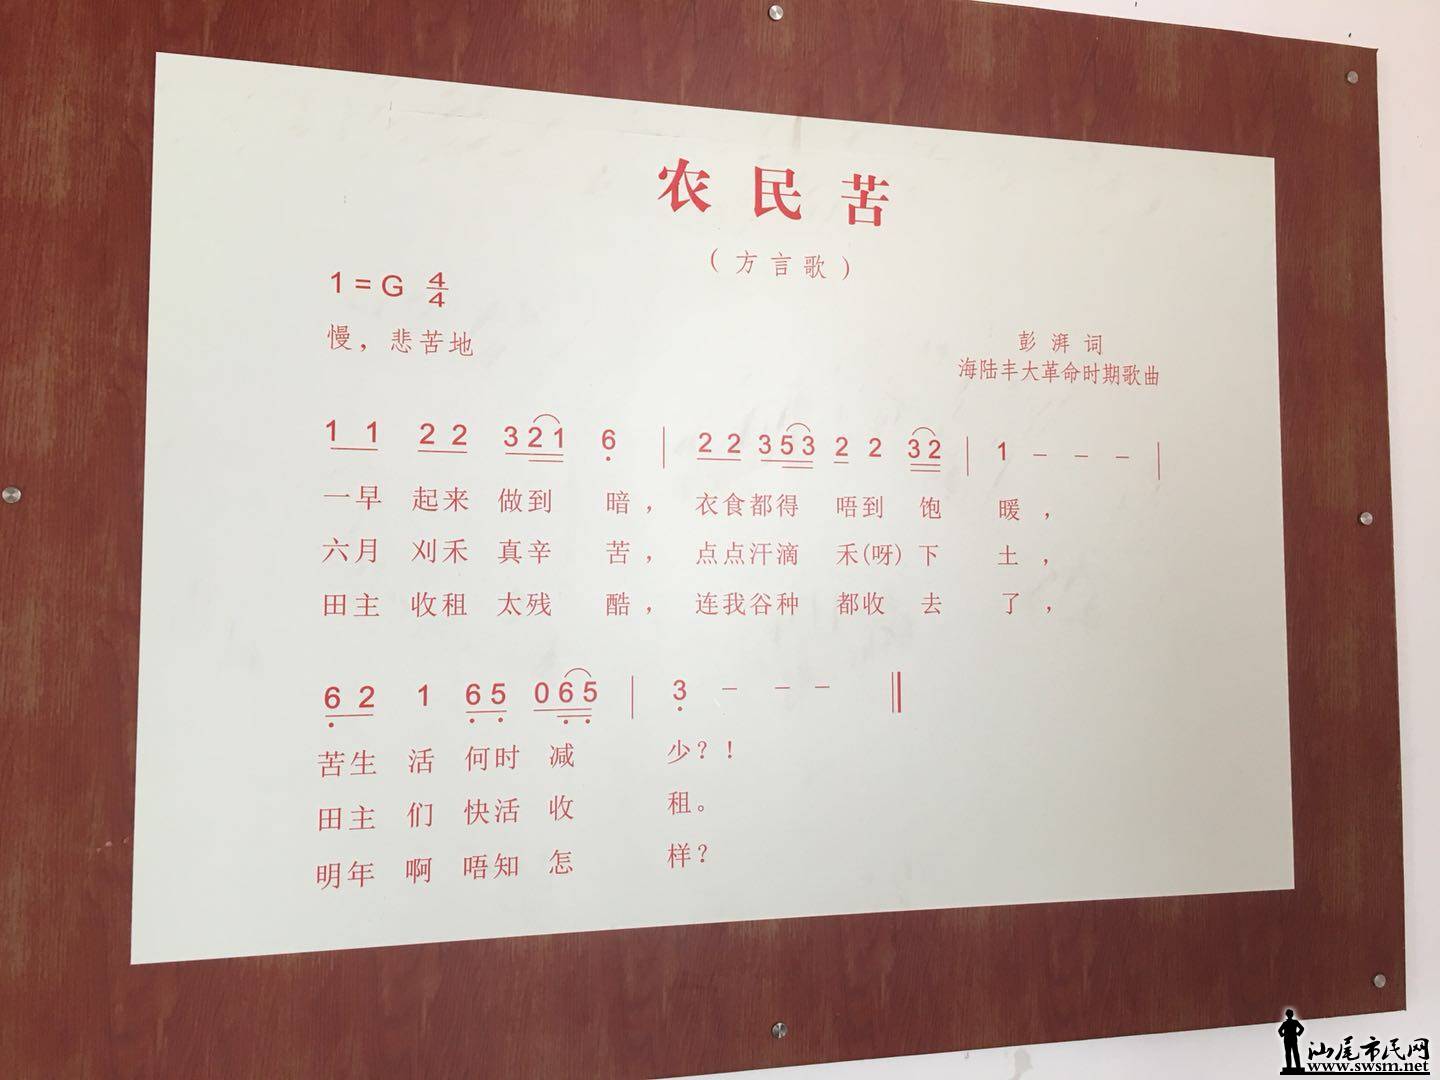 农民苦
（方言歌）
1=G 4/4
慢，悲苦地
彭湃词
海陆丰大革命时期歌曲
1 1 2 2 3 2 1 6 | 2 2 3 5 3 2 2 3 2 | 1 － － － |
一早 起来 做到 暗， 衣食都得 唔到 饱 暖，
六月 刈禾 真辛 苦， 点点汗滴 禾(呀)下 土，
田主 收租 太残 酷， 连我谷种 都收 去 了，
6 2 1 6 5 0 6 5 | 3 － － － ‖
苦生 活 何时 减 少？！
田主 们 快活 收 租。
明年 啊 唔知 怎 样？
汕尾市民网
www.swsm.net